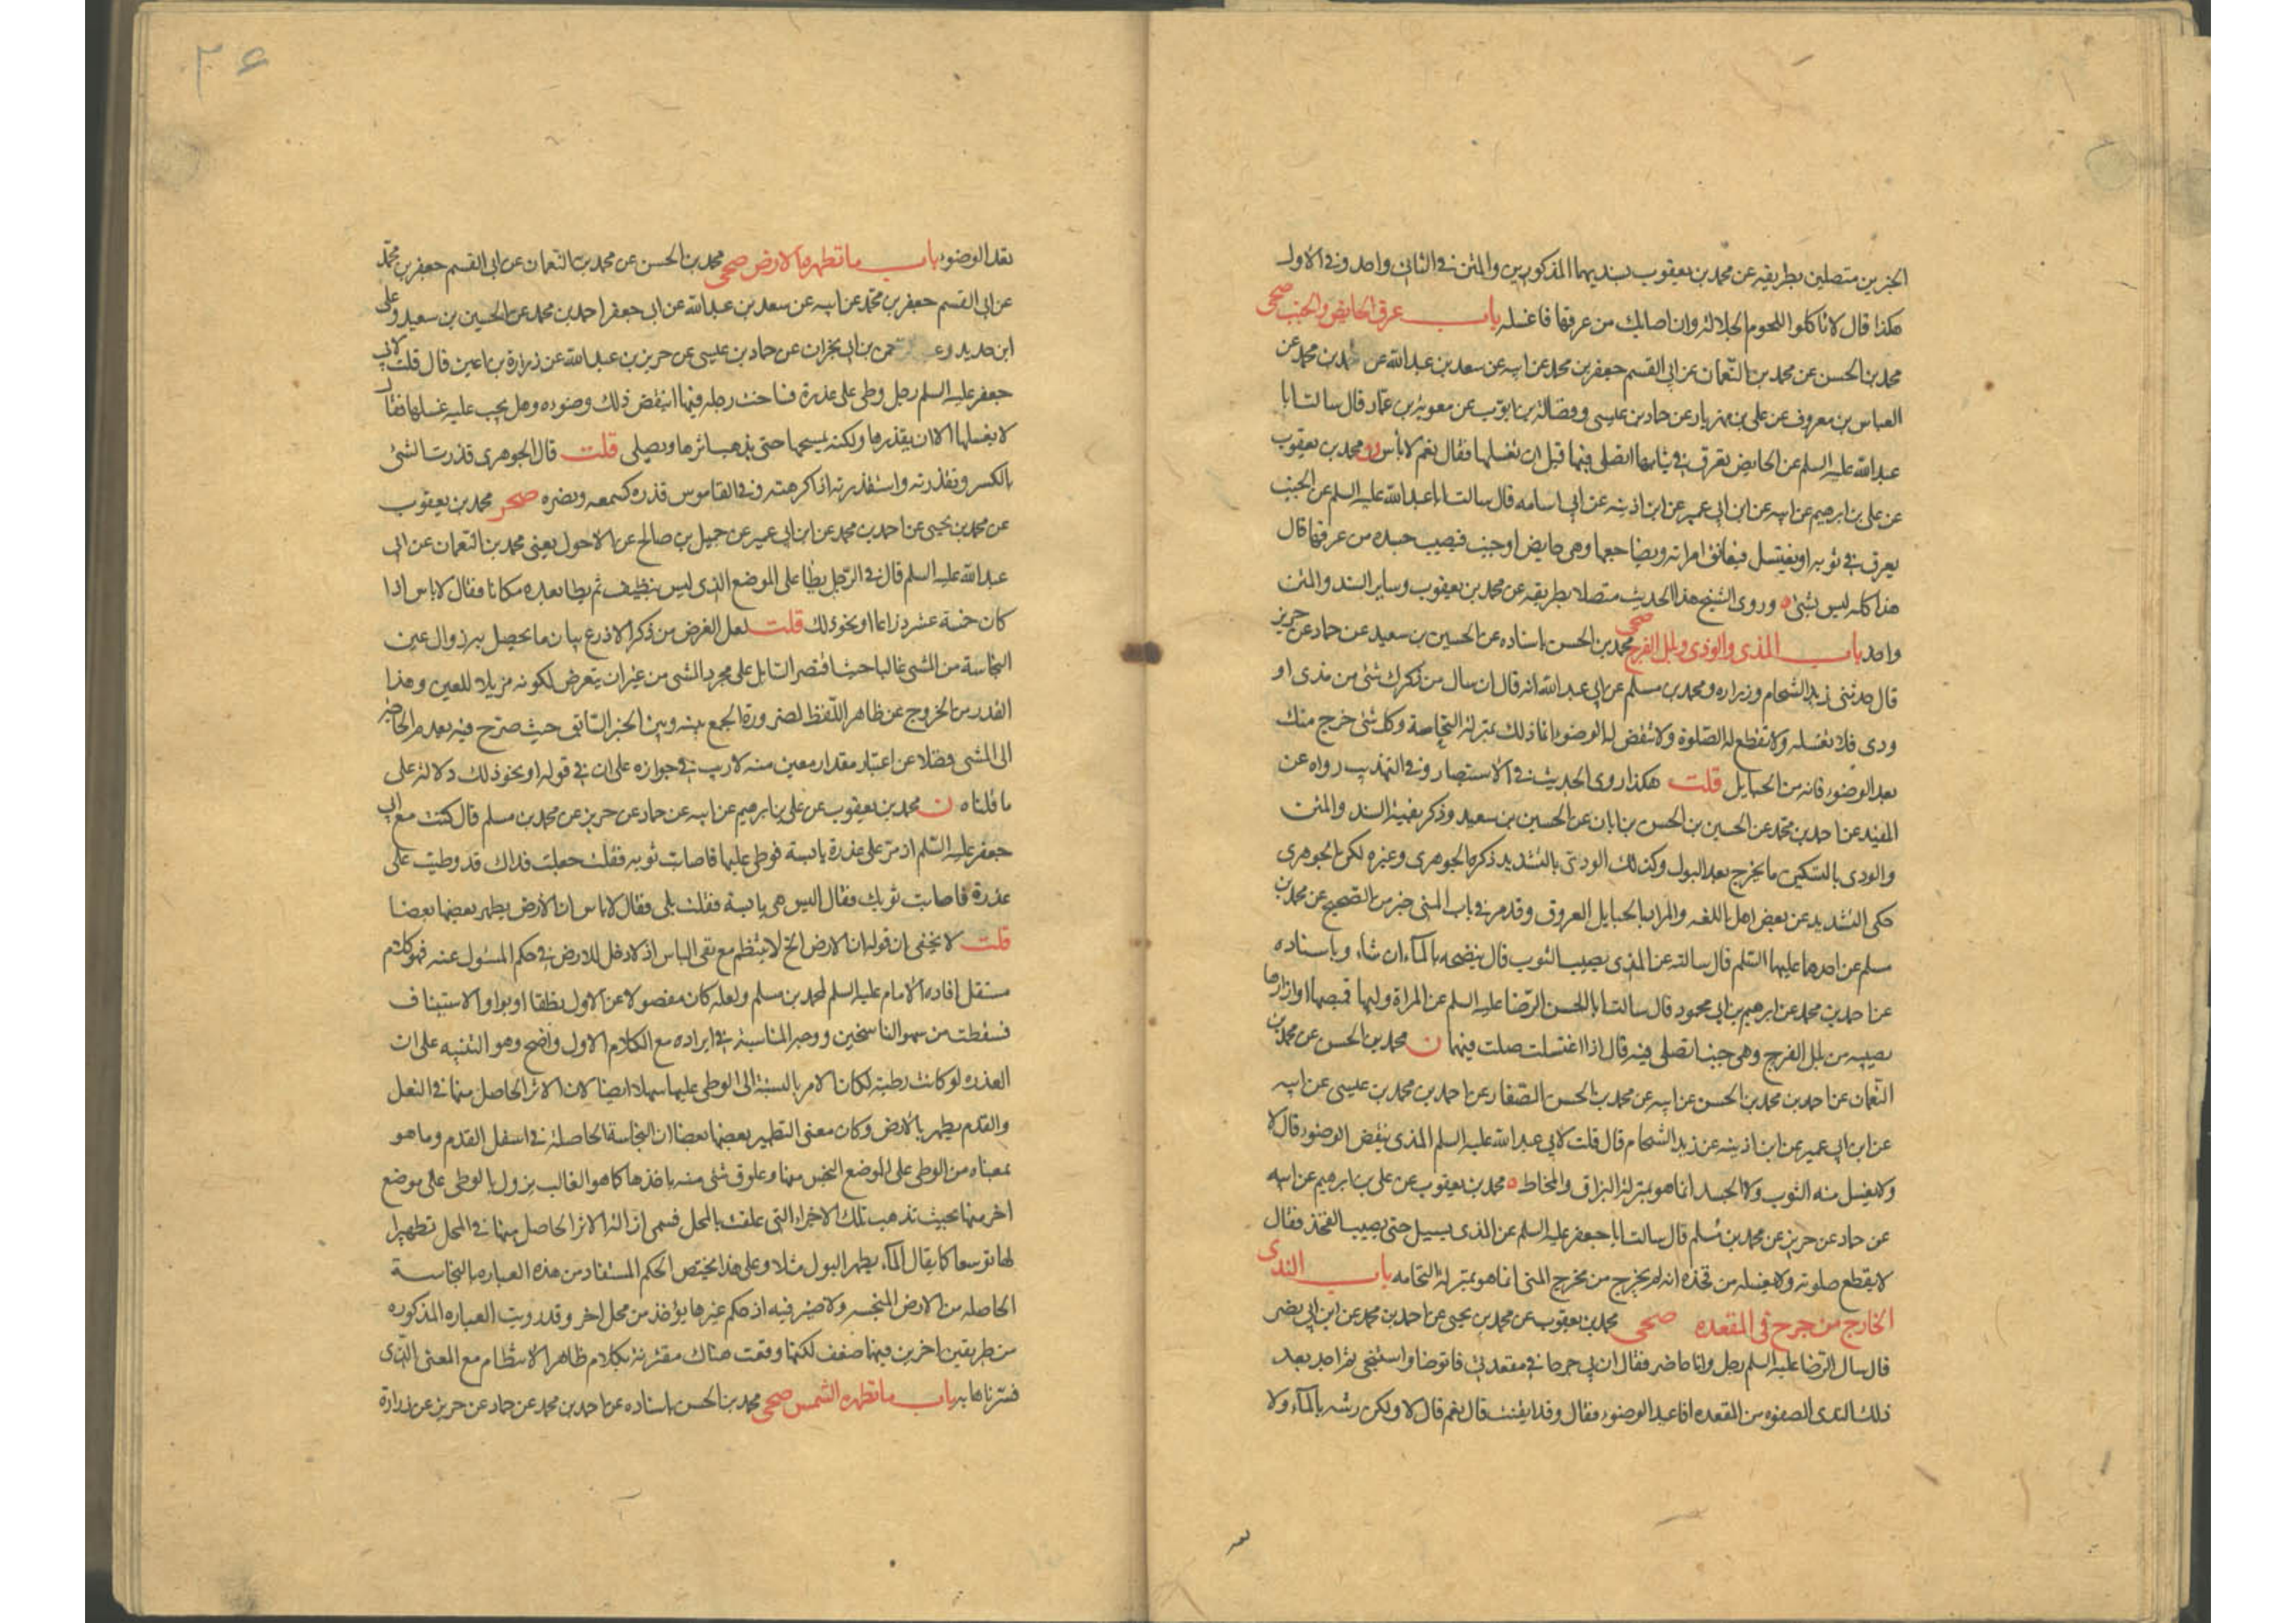 الخبرين متصلين بطريقه عن محمد بن يعقوب بسنديهما المذكورين والمتن في الثاني واحد وفي الاول
هكذا قال لا تاكلوا اللحوم الجلالة وان اصابك من عرقها فاغسله باب عرق الحايض والجنب صحى
محمد بن الحسن عن محمد بن النعمان عن ابي القسم جعفر بن محمد عن ابيه عن سعد بن عبد الله عن احمد بن محمد عن
العباس بن معروف عن علي بن مهزيار عن حماد بن عيسى وفضالة بن ايوب عن معوية بن عمار قال سالت ابا
عبد الله عليه السلم عن الحايض تعرق في ثيابها اتصلي فيها قبل ان تغسلها فقال نعم لا بأس محمد بن يعقوب
عن علي بن ابرهيم عن ابيه عن ابن ابي عمير عن ابن اذينه عن ابي اسامه قال سالت ابا عبد الله عليه السلم عن الجنب
يعرق في ثوبه او يغتسل فيعانق امراته ويضاجعها وهي حايض او جنب فيصيب جسده من عرقها قال
هذا كله ليس بشئ وروى الشيخ هذا الحديث متصلا بطريقه عن محمد بن يعقوب وساير السند والمتن
واحد باب المذي والوذي وبلل الفرج صحى محمد بن الحسن باسناده عن الحسين بن سعيد عن حماد عن حريز
قال حدثني زيد الشحام وزراره ومحمد بن مسلم عن ابي عبد الله انه قال ان سال من ذكرك شئ من مذي او
ودي فلا تغسله ولا تقطع له الصلوة ولا تنقض له الوضوء انما ذلك بمنزلة النخامة وكل شئ خرج منك
بعد الوضوء فانه من الحبايل قلت هكذا روى الحديث في الاستبصار وفي التهذيب رواه عن
المفيد عن احمد بن محمد عن الحسين بن الحسن بن ابان عن الحسين بن سعيد وذكر بقية السند والمتن
والودي بالتسكين ما يخرج بعد البول وكذلك الودي بالتشديد ذكره الجوهري وغيره لكن الجوهري
حكى التشديد عن بعض اهل اللغه والمراد بالحبايل العروق وقد مر في باب المني خبر من الصحيح عن محمد بن
مسلم عن احدهما عليهما السلم قال سالته عن المذي يصيب الثوب قال ينضحه بالماء ان شاء وباسناده
عن احمد بن محمد عن ابرهيم بن ابي محمود قال سالت ابا الحسن الرضا عليه السلم عن المراة وليها قميصها او ازارها
يصيبه من بلل الفرج وهي جنب اتصلي فيه قال اذا اغتسلت صلت فيهما ن محمد بن الحسن عن محمد بن
النعمان عن احمد بن محمد بن الحسن عن ابيه عن محمد بن الحسن الصفار عن احمد بن محمد بن عيسى عن ابيه
عن ابن ابي عمير عن ابن اذينه عن زيد الشحام قال قلت لابي عبد الله عليه السلم المذي ينقض الوضوء قال لا
ولا يغسل منه الثوب ولا الجسد انما هو بمنزلة البزاق والمخاط محمد بن يعقوب عن علي بن ابرهيم عن ابيه
عن حماد عن حريز عن محمد بن مسلم قال سالت ابا جعفر عليه السلم عن المذي يسيل حتى يصيب الفخذ فقال
لا يقطع صلوته ولا يغسله من فخذه انه لم يخرج من مخرج المني انما هو بمنزلة النخامه باب الندى
الخارج من جرح في المقعده صحى محمد بن يعقوب عن محمد بن يحيى عن احمد بن محمد عن ابن ابي نصر
قال سال الرضا عليه السلم رجل وانا حاضر فقال ان بي جرحا في مقعدتي فاتوضا واستنجي ثم اجد بعد
ذلك الندى الصفره من المقعده افاعيد الوضوء فقال وقد ايقنت قال نعم قال لا ولكن رشه بالماء ولا
٢٤
تعد الوضوء باب ما تطهره الارض صحى محمد بن الحسن عن محمد بن النعمان عن ابي القسم جعفر بن محمد
عن ابي القسم جعفر بن محمد عن ابيه عن سعد بن عبد الله عن ابي جعفر احمد بن محمد عن الحسين بن سعيد وعلي
ابن حديد وعبد الرحمن بن ابي نجران عن حماد بن عيسى عن حريز بن عبد الله عن زرارة بن اعين قال قلت لابي
جعفر عليه السلم رجل وطئ على عذرة فساخت رجله فيها اينقض ذلك وضوءه وهل يجب عليه غسلها فقال
لا يغسلها الا ان يقذرها ولكنه يمسحها حتى يذهب اثرها ويصلي قلت قال الجوهري قذرت الشئ
بالكسر وتقذرته واستقذرته اذا كرهته وفي القاموس قذره كسمعه ونصره صحر محمد بن يعقوب
عن محمد بن يحيى عن احمد بن محمد عن ابن ابي عمير عن جميل بن صالح عن الاحول يعني محمد بن النعمان عن ابي
عبد الله عليه السلم قال في الرجل يطأ على الموضع الذي ليس بنظيف ثم يطا بعده مكانا فقال لا باس اذا
كان خمسة عشر ذراعا او نحو ذلك قلت لعل الغرض من ذكر الاذرع بيان ما يحصل به زوال عين
النجاسة من المشي غالبا حيث اقتصر السايل على مجرد المشي من غير ان يتعرض لكونه مزيلا للعين وهذا
القدر من الخروج عن ظاهر اللفظ لضرورة الجمع بينه وبين الخبر السابق حيث صرح فيه بعدم الحاجة
الى المشي فضلا عن اعتبار مقدار معين منه لا ريب في جوازه على ان في قوله او نحو ذلك دلالة على
ما قلناه ن محمد بن يعقوب عن علي بن ابرهيم عن ابيه عن حماد عن حريز عن محمد بن مسلم قال كنت مع ابي
جعفر عليه السلم اذ مر على عذرة يابسة فوطئ عليها فاصابت ثوبه فقلت جعلت فداك قد وطيت على
عذرة فاصابت ثوبك فقال اليس هي يابسة فقلت بلى فقال لا باس ان الارض يطهر بعضها بعضا
قلت لا يخفى ان قوله ان الارض الخ لا ينتظم مع نفي الباس اذ لا دخل للارض في حكم المسئول عنه فهو كلام
مستقل افاده الامام عليه السلم لمحمد بن مسلم ولعله كان مفصولا عن الاول بلفظ قال او بواو الاستيناف
فسقطت من سهو الناسخين ووجه المناسبة في ايراده مع الكلام الاول واضح وهو التنبيه على ان
العذره لو كانت رطبة لكان الامر بالنسبة الى الوطي عليها سهلا ايضا لان الاثر الحاصل منها في النعل
والقدم يطهر بالارض وكان معنى التطهير بعضها بعضا ان النجاسة الحاصلة في اسفل القدم وما هو
بمعناه من الوطي على الموضع النجس منها وعلوق شئ منه باخذها كما هو الغالب يزول بالوطي على موضع
اخر منها بحيث تذهب تلك الاجزاء التي علقت بالمحل فسمي ازالة الاثر الحاصل منها في المحل تطهيرا
لها توسعا كما يقال الماء يطهر البول مثلا وعلى هذا يختص الحكم المستفاد من هذه العباره بالنجاسة
الحاصله من الارض المنجسه ولا ضير فيه اذ حكم غيرها يؤخذ من محل اخر وقد رويت العباره المذكوره
من طريقين اخرين فيهما ضعف لكنها وقعت هناك مقترنة بكلام ظاهر الانتظام مع المعنى الذي
فسرناها به باب ما تطهره الشمس صحى محمد بن الحسن باسناده عن احمد بن محمد عن حماد عن حريز عن زرارة